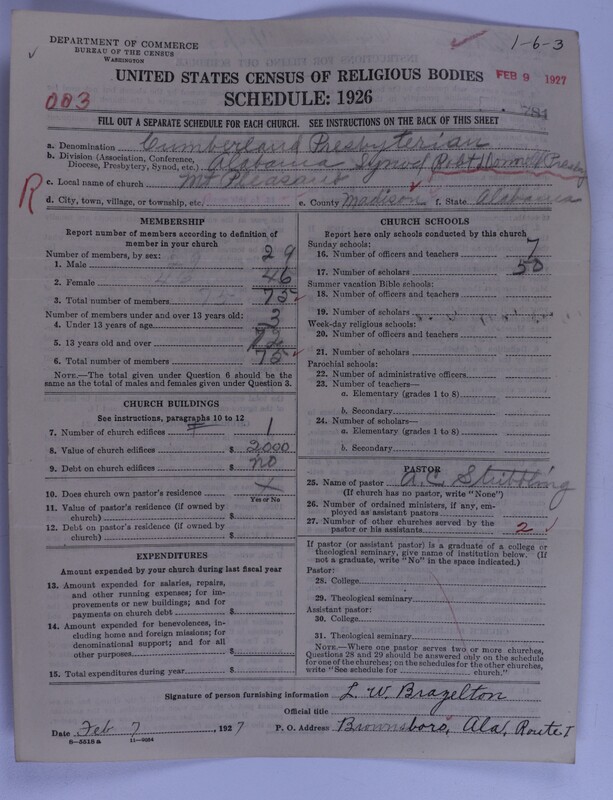 DEPARTMENT OF COMMERCE
BUREAU OF THE CENSUS
WASHINGTON
1-6-3
UNITED STATES CENSUS OF RELIGIOUS BODIES
FEB 9 1927
003
SCHEDULE: 1926
784
FILL OUT A SEPARATE SCHEDULE FOR EACH CHURCH. SEE INSTRUCTIONS ON THE BACK OF THIS SHEET
a. Denomination Cumberland Presbyterian
b. Division (Association, Conference, Diocese, Presbytery, Synod, etc.) Alabama Synod Robt Donnell Presby
R
c. Local name of church Mt Pleasant
d. City, town, village, or township, etc. e. County Madison f. State Alabama
MEMBERSHIP
Report number of members according to definition of
member in your church
Number of members, by sex:
1. Male 29
2. Female 46
3. Total number of members 75
Number of members under and over 13 years old:
4. Under 13 years of age 3
5. 13 years old and over 72
6. Total number of members 75
NOTE.—The total given under Question 6 should be the
same as the total of males and females given under Question 3.
CHURCH BUILDINGS
See instructions, paragraphs 10 to 12
7. Number of church edifices 1
8. Value of church edifices $ 2000
9. Debt on church edifices $ no
10. Does church own pastor's residence X
Yes or No
11. Value of pastor's residence (if owned by
church) $
12. Debt on pastor's residence (if owned by
church) $
EXPENDITURES
Amount expended by your church during last fiscal year
13. Amount expended for salaries, repairs,
and other running expenses; for im-
provements or new buildings; and for
payments on church debt $
14. Amount expended for benevolences, in-
cluding home and foreign missions; for
denominational support; and for all
other purposes $
15. Total expenditures during year $
CHURCH SCHOOLS
Report here only schools conducted by this church
Sunday schools:
16. Number of officers and teachers 7
17. Number of scholars 50
Summer vacation Bible schools:
18. Number of officers and teachers
19. Number of scholars
Week-day religious schools:
20. Number of officers and teachers
21. Number of scholars
Parochial schools:
22. Number of administrative officers
23. Number of teachers—
a. Elementary (grades 1 to 8)
b. Secondary
24. Number of scholars—
a. Elementary (grades 1 to 8)
b. Secondary
PASTOR
25. Name of pastor A. C. Stribbling
(If church has no pastor, write "None")
26. Number of ordained ministers, if any, em-
ployed as assistant pastors
27. Number of other churches served by the
pastor or his assistants 2
If pastor (or assistant pastor) is a graduate of a college or
theological seminary, give name of institution below. (If
not a graduate, write "No" in the space indicated.)
Pastor:
28. College
29. Theological seminary
Assistant pastor:
30. College
31. Theological seminary
NOTE.—Where one pastor serves two or more churches,
Questions 28 and 29 should be answered only on the schedule
for one of the churches; on the schedules for the other churches,
write "See schedule for church."
Signature of person furnishing information L. W. Brazelton
Official title
Date Feb 7, 1927 P. O. Address Brownsboro, Ala, Route 1
8-5518 a 11-9024